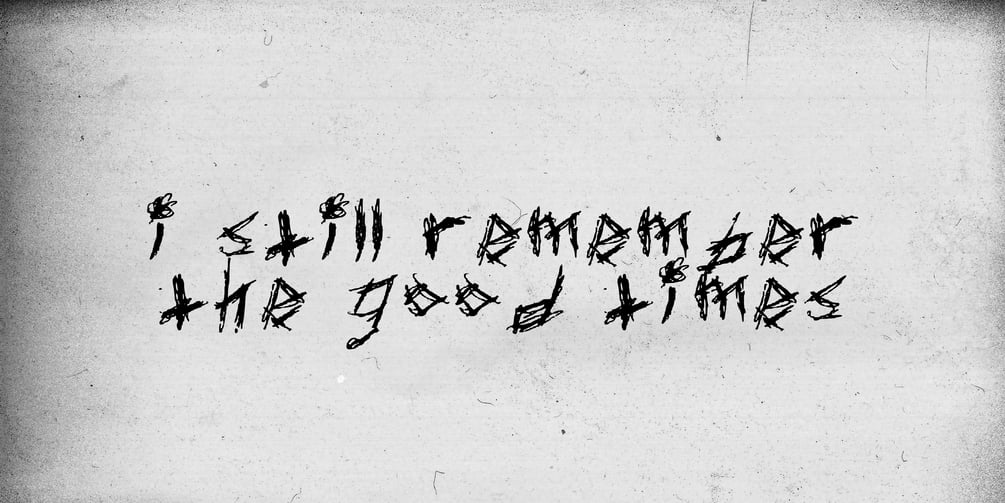 i still remember
the good times